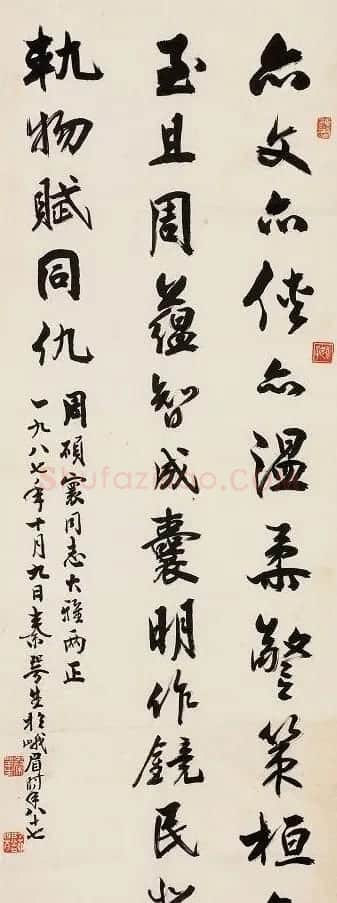 亦文亦侠亦温柔警策桓
至且周蕴智成囊明作镜民
轨物赋同仇
周硕寰同志大雅两正
一九八七年十月九日秦萼生於峨眉时年八十七
Shufaziliao.com